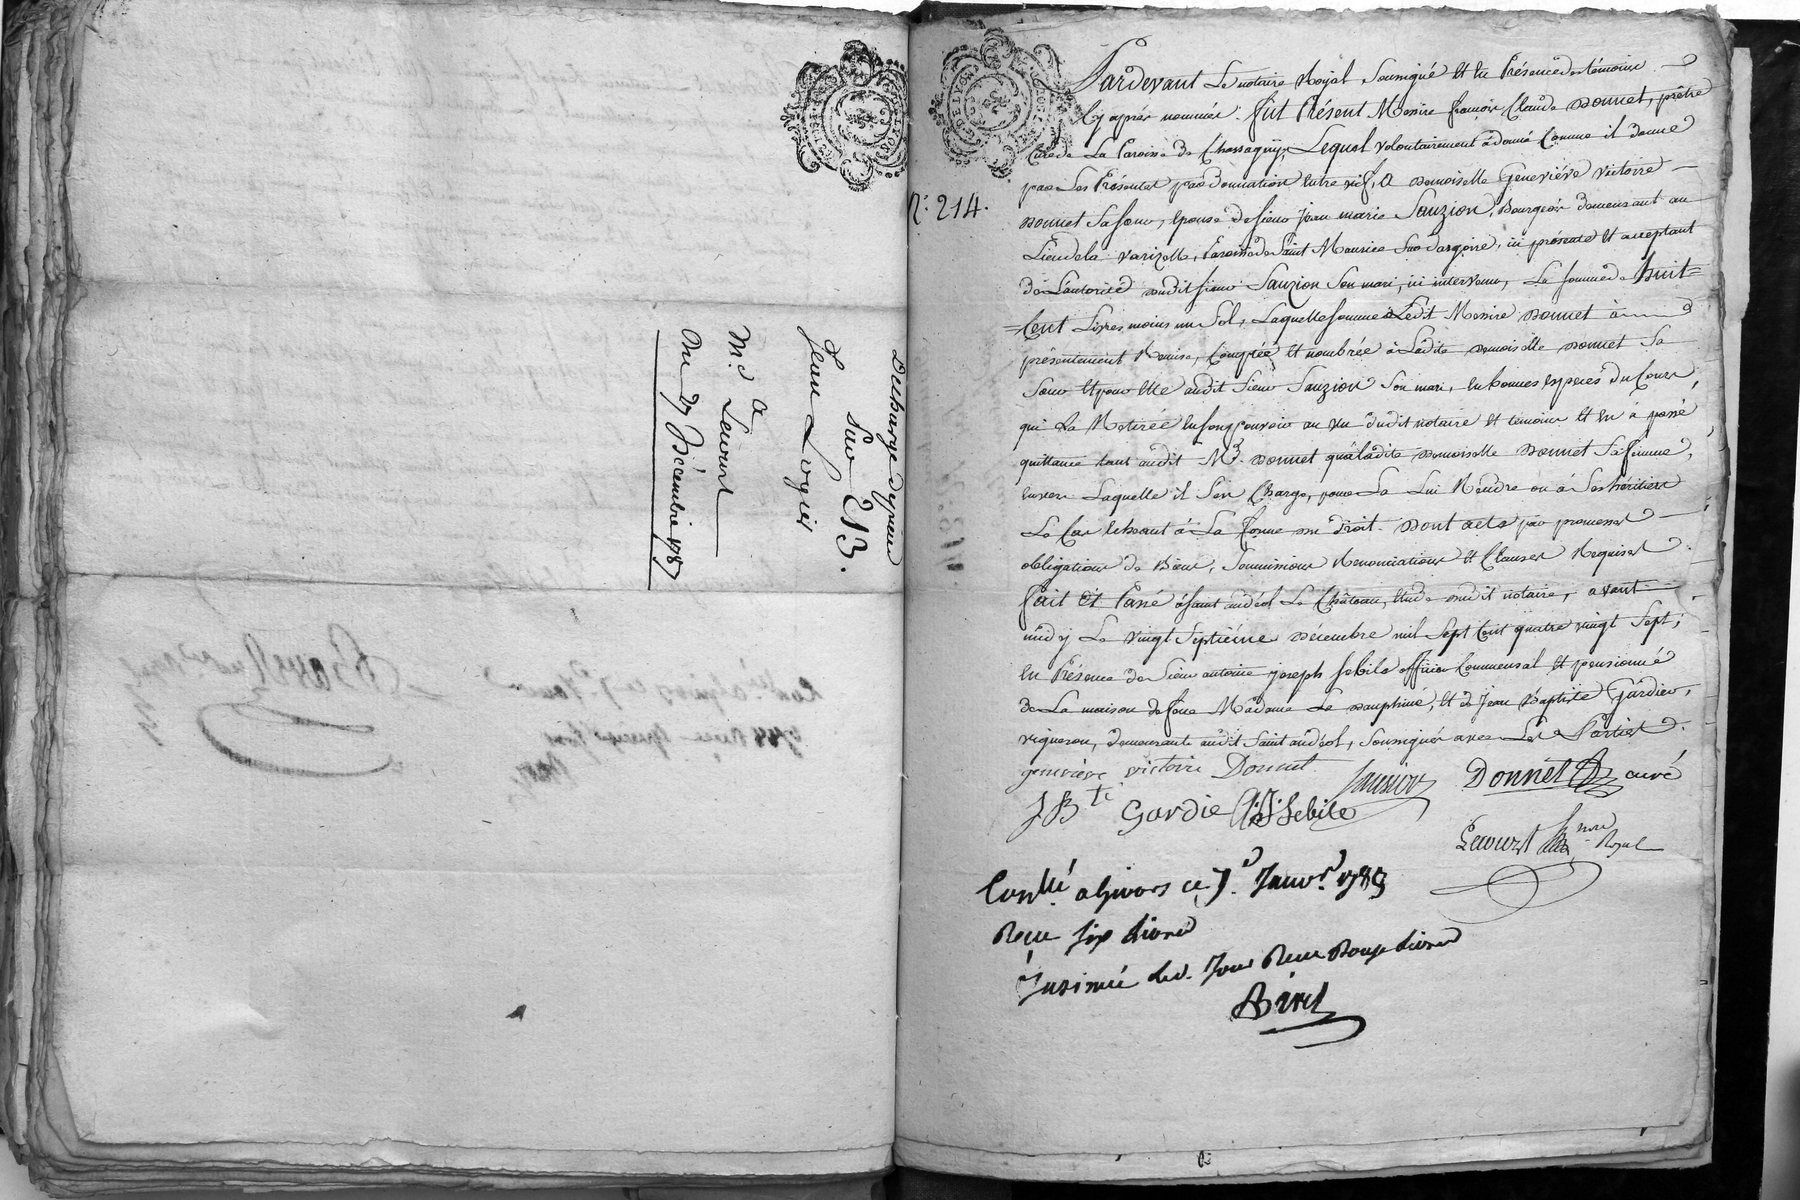 Decharge de prix
Sur 213.
Jean Logier
a
M.e Lecourt
Du 27 Décembre 1787
N.° 214.
Pardevant Le notaire Royal Soussigné Et En Présence des témoins
Cy après nommés. fut Présent Messire françois Claude Donnet, prêtre
Curé de La Paroisse de Chassagny, Lequel volontairement à donné Comme il donne
par Les Présentes par donnation Entre vifs, a Demoiselle Geneviéve victoire
Donnet Sa Sœur, épouse de Sieur Jean marie Sauzion, Bourgeois demeurant au
Lieu de la varizelle, Paroisse de Saint Maurice Sur dargoire, ici présente Et acceptant
de L'autorité dudit Sieur Sauzion Son mari, ici intervenu, La Somme de huit=
=Cent Livres moins un Sol, Laquelle Somme Ledit Messire Donnet à
présentement Remise, Comptée Et nombrée à Ladite Demoiselle Donnet Sa
Sœur Et pour Elle audit Sieur Sauzion Son mari, En bonnes Especes du Cours
qui La Retirée En Son pouvoir au vu dudit notaire Et temoins Et En à passé
quittance tant audit M.re Donnet qu'à Ladite Demoiselle Donnet Sa femme,
Envers Laquelle il S'en Charge, pour La Lui Rendre ou à Ses héritiers
Le Cas Echeant à La forme du droit. Dont acte par promesses
obligations de Biens, Soumissions Renonciations Et Clauses Requises
fait Et Passé à Saint andéol Le Château, Etude dudit notaire, avant
midy Le vingt Septiéme Décembre mil Sept Cent quatre vingt Sept;
En Présence de Sieur antoine joseph Sebile officier Commensal Et pensionné
de La maison de feue Madame La Dauphine, Et de Jean Baptiste Gardier,
vigneron, demeurants audit Saint andéol, Soussignés avec Les Parties.
genevieve victoire Donnet Sauzion Donnet curé
J B te Gardie A. J. Sebile
Lecourt nore Royal
Conllé a Givors ce 7.e Janv.r 1788
Reçu six livres
Insinué led. Jour Reçu Douze livres